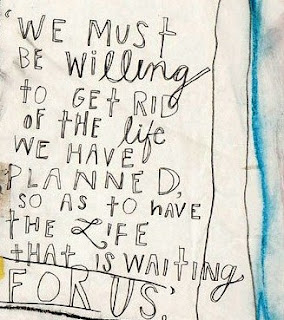 "WE MUST
BE WilliNG
TO GET RID
OF THE life
WE HAVE
PLANNED,
SO AS TO HAVE
THE LIFE
THAT IS WAITING
FOR US."